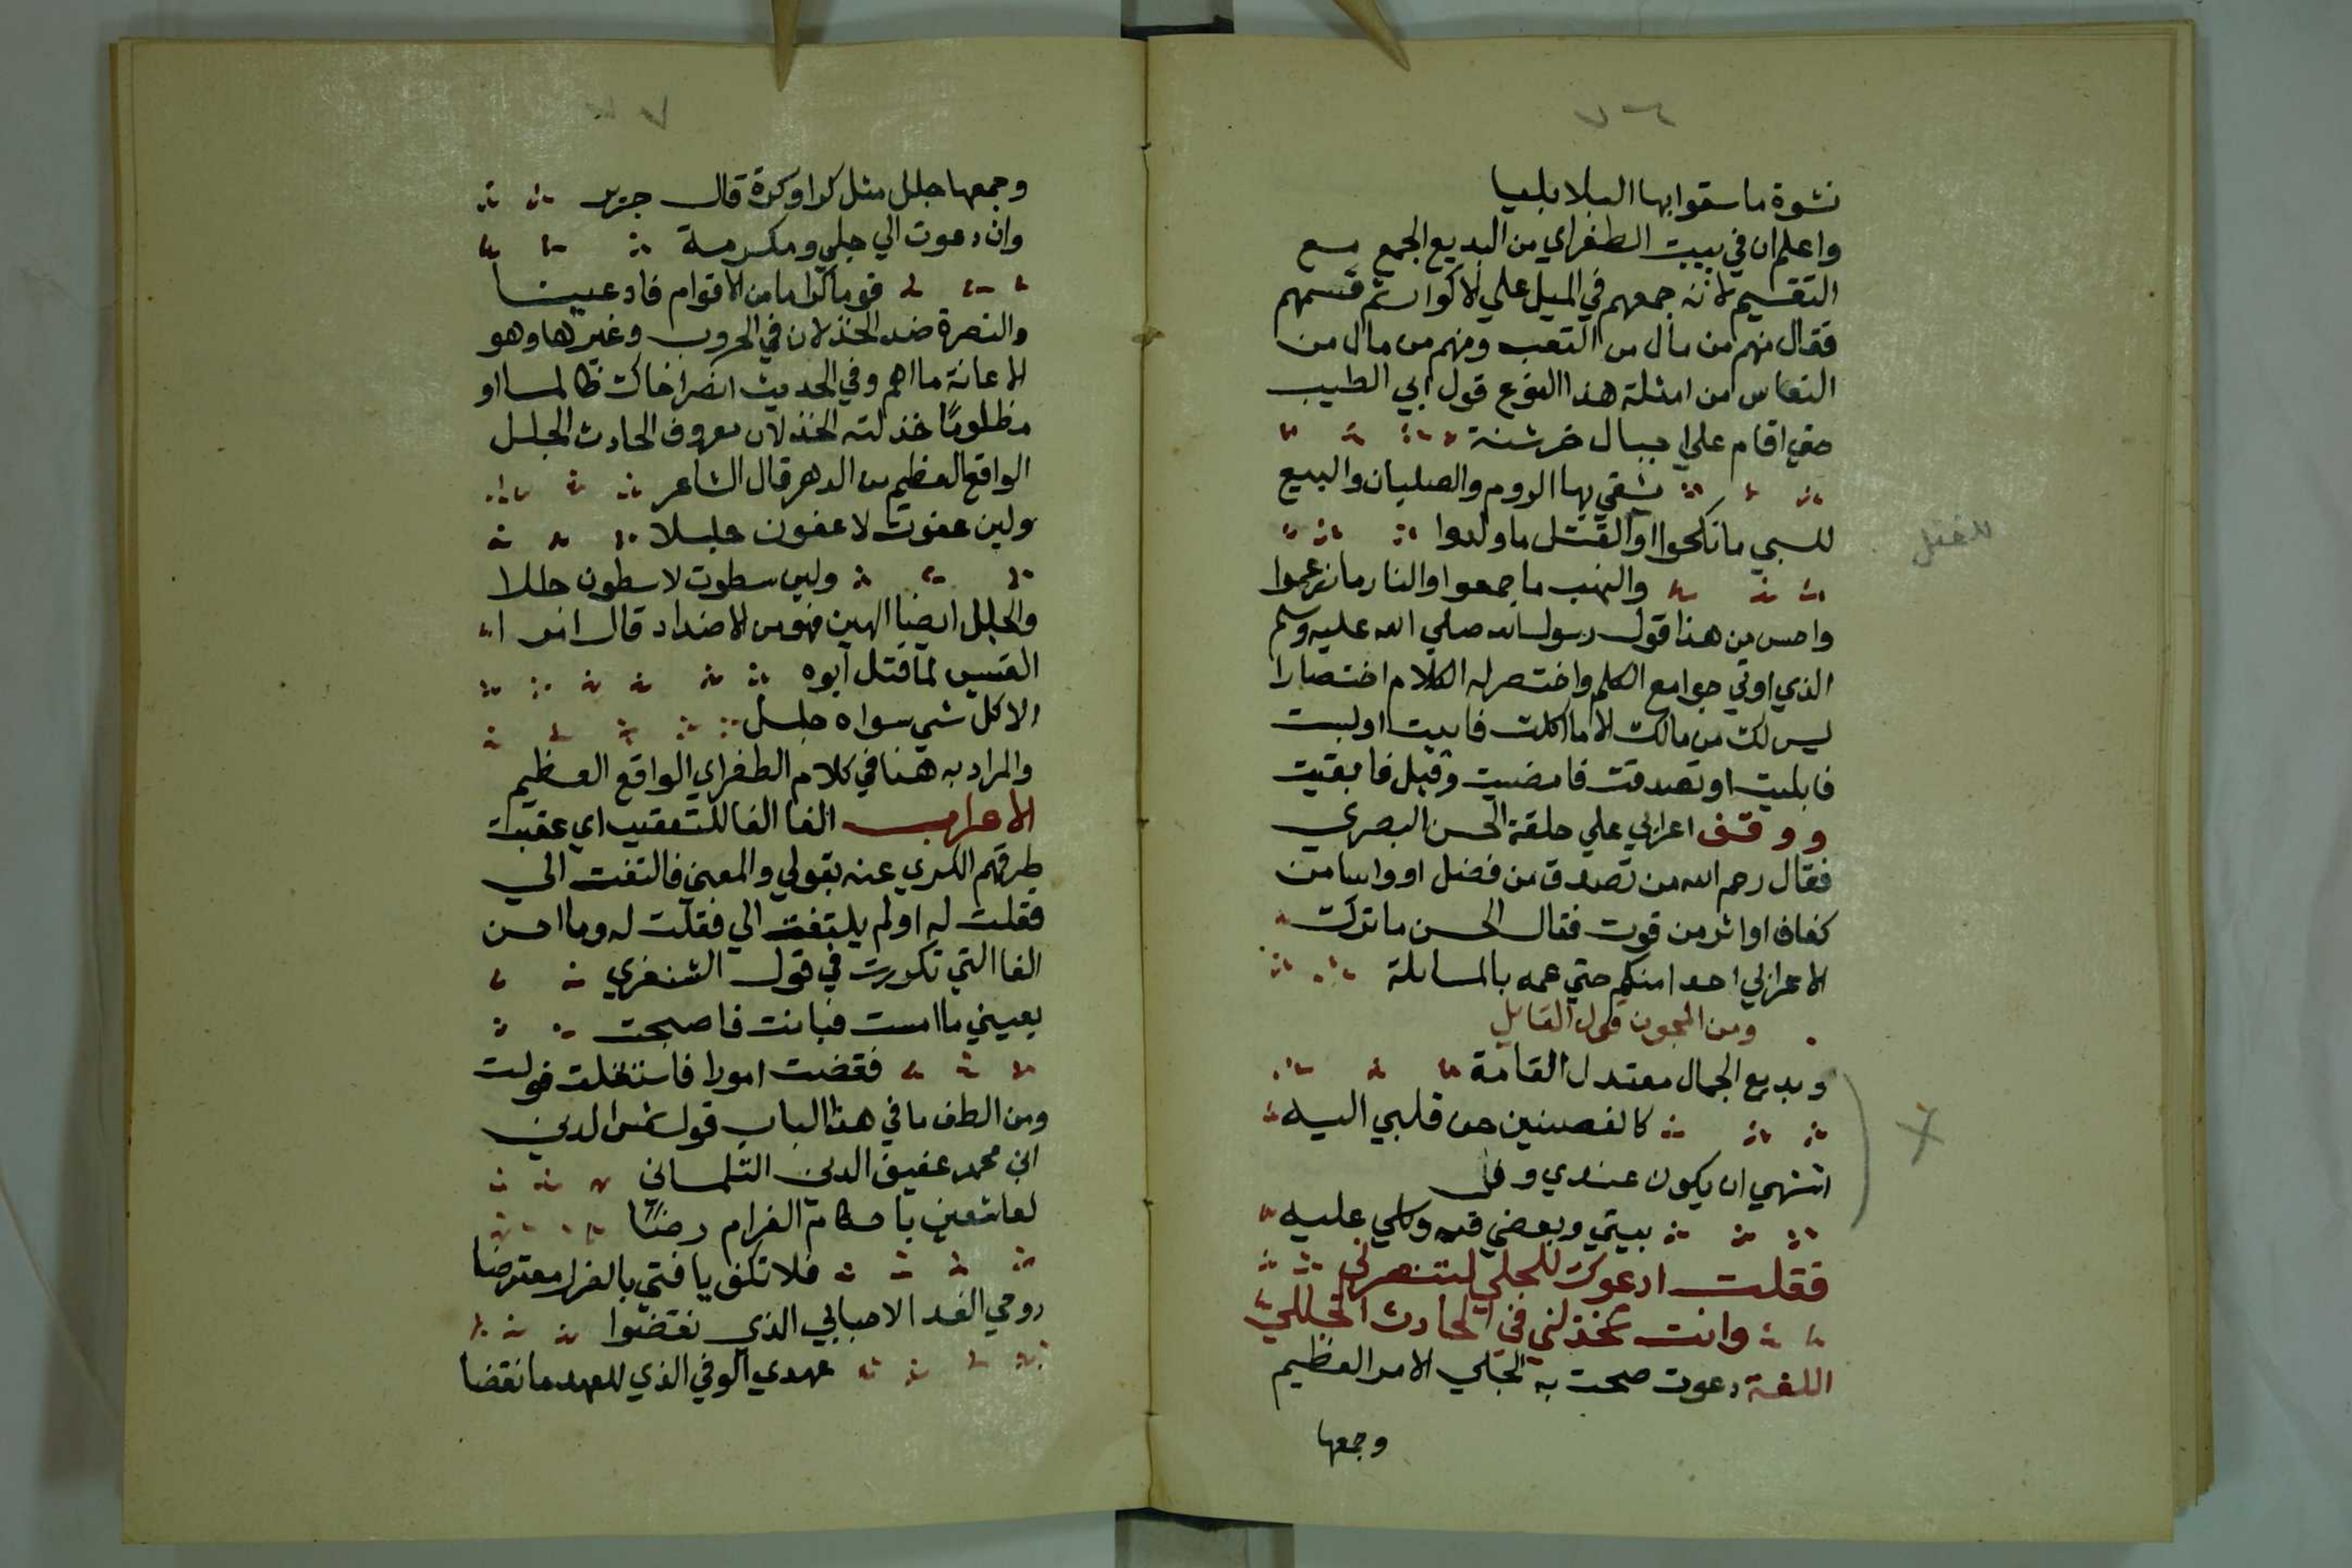 نشوة ما سقوا بها البلابليا
واعلم ان في بيت الطغراي من البديع الجمع مع
التقسيم لانه جمعهم في الميل علي الاكوار ثم قسمهم
فقال منهم من مال من التعب ومنهم من مال من
النعاس من امثلة هذا النوع قول ابي الطيب
حتي اقام علي ارباض خرشنة
تشقي بها الروم والصلبان والبيع
للسبي ما نكحوا والقتل ما ولدوا
للقتل
والنهب ما جمعوا والنار ما زرعوا
واحسن من هذا قول رسول الله صلي الله عليه وسلم
الذي اوتي جوامع الكلم واختصر له الكلام اختصارا
ليس لك من مالك الا ما اكلت فافنيت او لبست
فابليت او تصدقت فامضيت وقيل فابقيت
ووقف اعرابي علي حلقة الحسن البصري
فقال رحم الله من تصدق من فضل او واسا من
كفاف او اثر من قوت فقال الحسن ما ترك
الاعرابي احدا منكم حتي عمه بالمسايلة
ومن المجون قول القايل
وبديع الجمال معتدل القامة
كالغصن حن قلبي اليه
اشتهي ان يكون عندي وفي
بيتي وبعضي فيه وكلي عليه
فقلت ادعوك للجلي لتنصرني
وانت تخذلني في الحادث الجلل
اللغة دعوت صحت به الجلي الامر العظيم
وجمعها
وجمعها جلل مثل كبرا وكبرة قال جرير
وان دعوت الي جلي ومكرمة
قوما كراما من الاقوام فادعينا
والنصرة ضد الخذلان في الحروب وغيرها وهو
الاعانة ما اهم وفي الحديث انصر اخاك ظالما او
مظلوما خذلته الخذلان معروف الحادث الجلل
الواقع العظيم من الدهر قال الشاعر
ولين عفوت لاعفون جللا
ولين سطوت لاسطون جللا
والجلل ايضا الهين فهو من الاضداد قال امر ا
القيس لما قتل ابوه
الا كل شي سواه جلل
والمراد به هنا في كلام الطغراي الواقع العظيم
الاعراب الفا الفا للتعقيب اي عقبت
طرقهم الكري عنه بقولي والمعني فالتفت الي
فقلت له او لم يلتفت الي فقلت له وما احسن
الفا التي تكررت في قول الشنفري
بعيني ما امست فباتت فاصبحت
فقضت امورا فاستقلت فولت
ومن الطف ما في هذا الباب قول شمس الدين
ابن محمد عفيف الدين التلمساني
لعاشقين باحكام الغرام رضا
فلا تكن يا فتي بالعزل معترضا
روحي الفدا لاحبابي الذي نقضوا
عهدي الوفي الذي للعهد ما نقضا